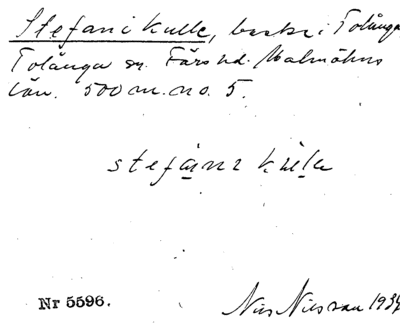 Stefani kulle, backe i Tolånga
Tolånga sn. Färs hd. Malmöhus
län. 500 m. no. 5.
stefani kule
Nr 5596.
Nils Nilsson 1934